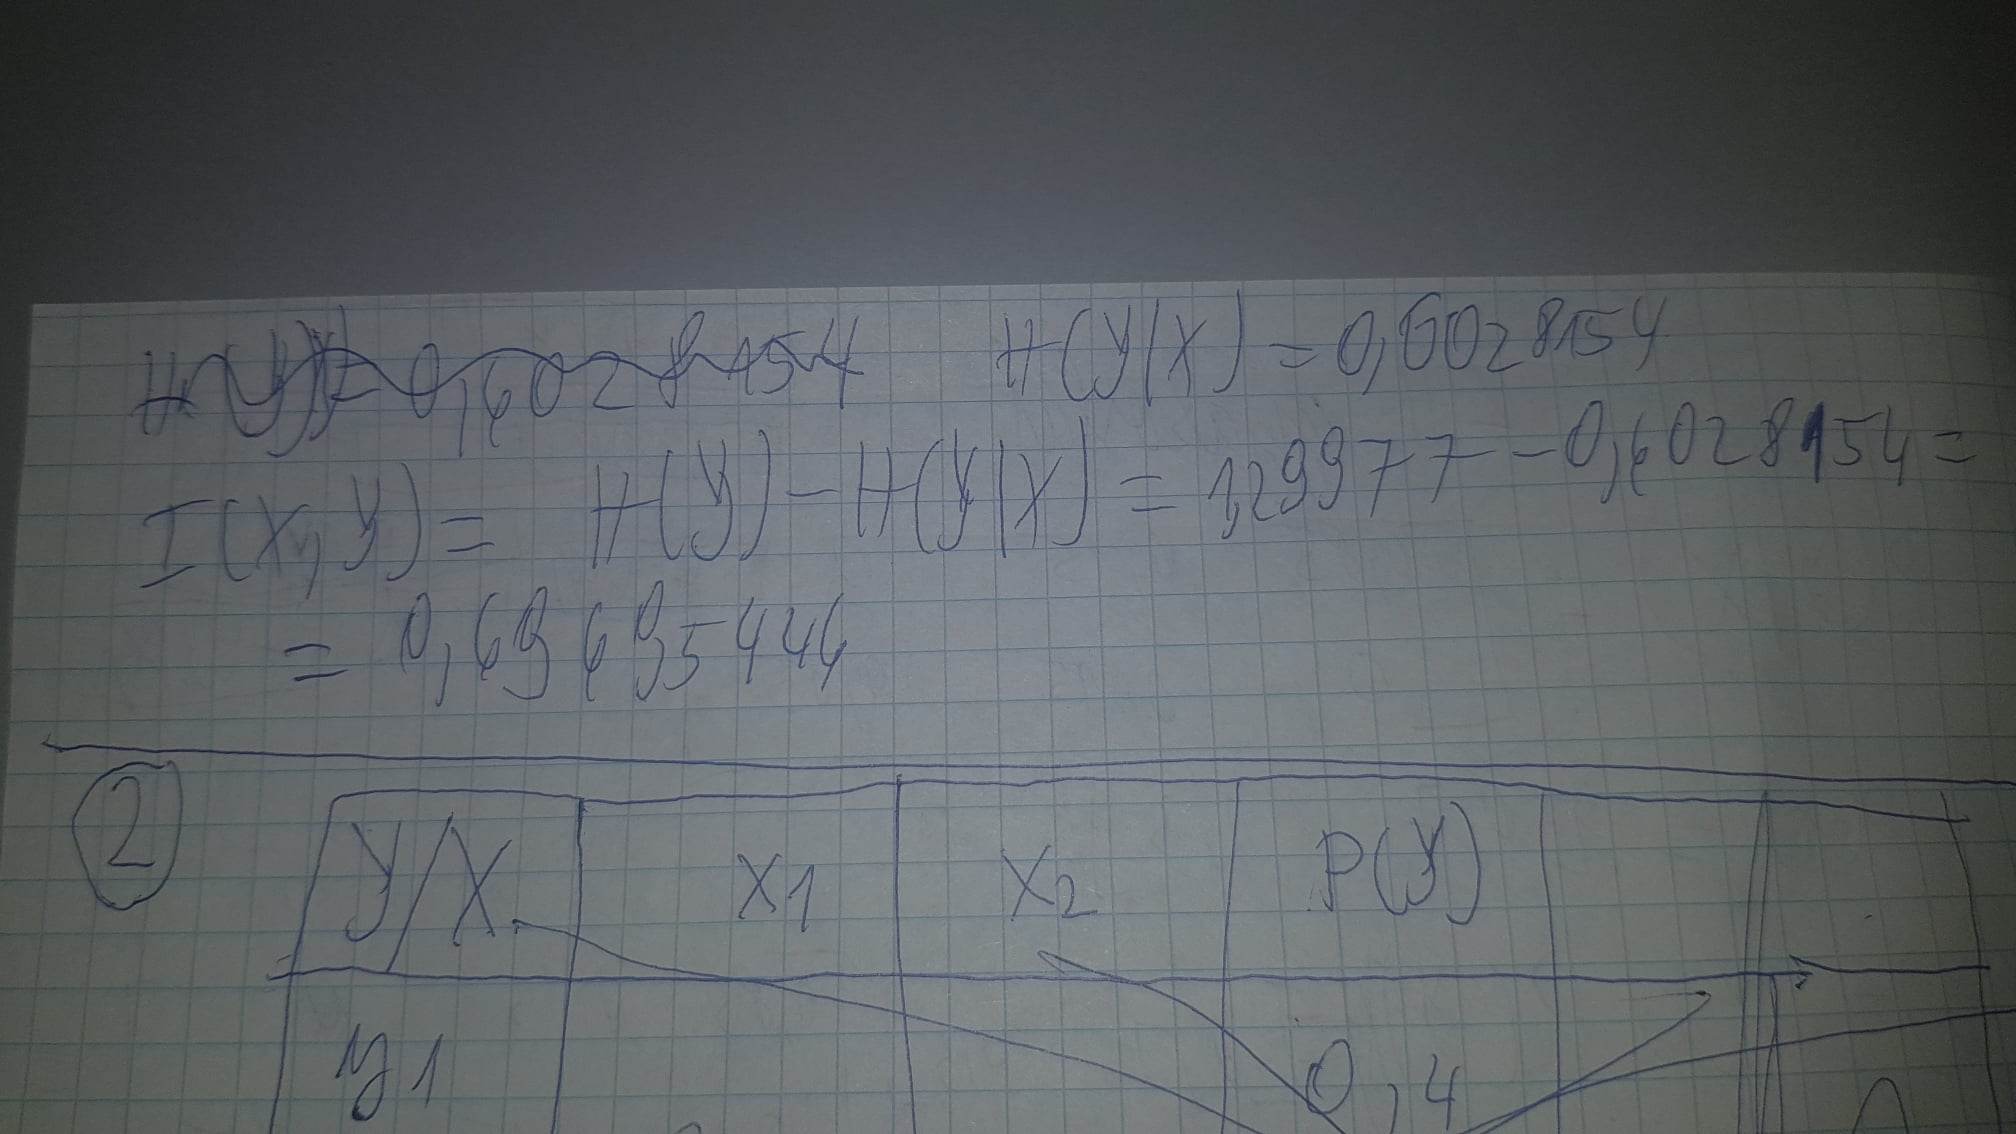 H(Y|X) = 0,6028154 H(Y|X) = 0,6028154
I(X,Y) = H(Y) - H(Y|X) = 1,29977 - 0,6028154 =
= 0,69695446
2
Y/X x1 x2 P(Y)
y1 0,4